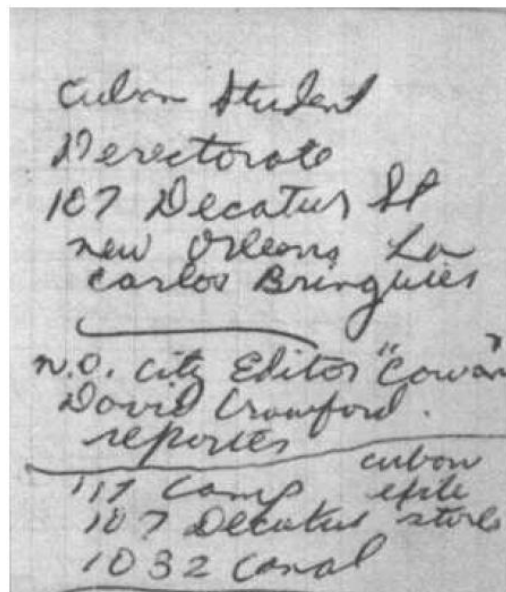 Cuban Student
Derectorate
107 Decatur St
New Orleans La
Carlos Bringuier
N.O. City Editor "Cowan"
David Crawford.
reporter
117 Camp cuban
107 Decatur store
1032 Canal